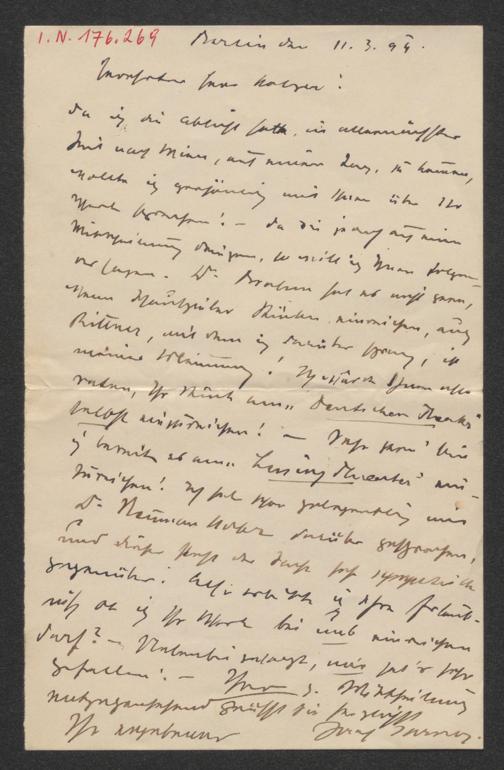 I.N. 176.269
Berlin den 11. 3. 99.
Verehrter Herr
Da ich die Absicht hatte, in allernächster
Zeit nach Wien, auf einen Tag, zu kommen,
wollte ich persönlich mit Ihnen über Ihr
Werk sprechen! – Da Sie jedoch auf eine
Mittheilung dringen, so will ich Ihnen Folgen-
des sagen. Dr. Brahm hat es nicht gern,
wenn Schauspieler Stücke einreichen, auch
Rittner, mit dem ich darüber sprach, ist
meiner Meinung! Ich würde Ihnen also
rathen, Ihr Stück am „Deutschen Theater"
selbst einzureichen! –
ich bereit es am „Lessing Theater" ein-
zureichen! Ich habe schon gelegentlich mit
Dr. Neumann Hofer darüber gesprochen,
und dieser steht der Sache sehr sympatisch
gegenüber! Also erbitte ich Ihre Erlaub-
niß ob ich Ihr Werk bei uns einreichen
darf? – Nebenbei gesagt, mir hat's sehr
gefallen! – Ihrer g. Mittheilung
entgegensehend grüßt Sie herzlichst
Ihr ergebener Josef